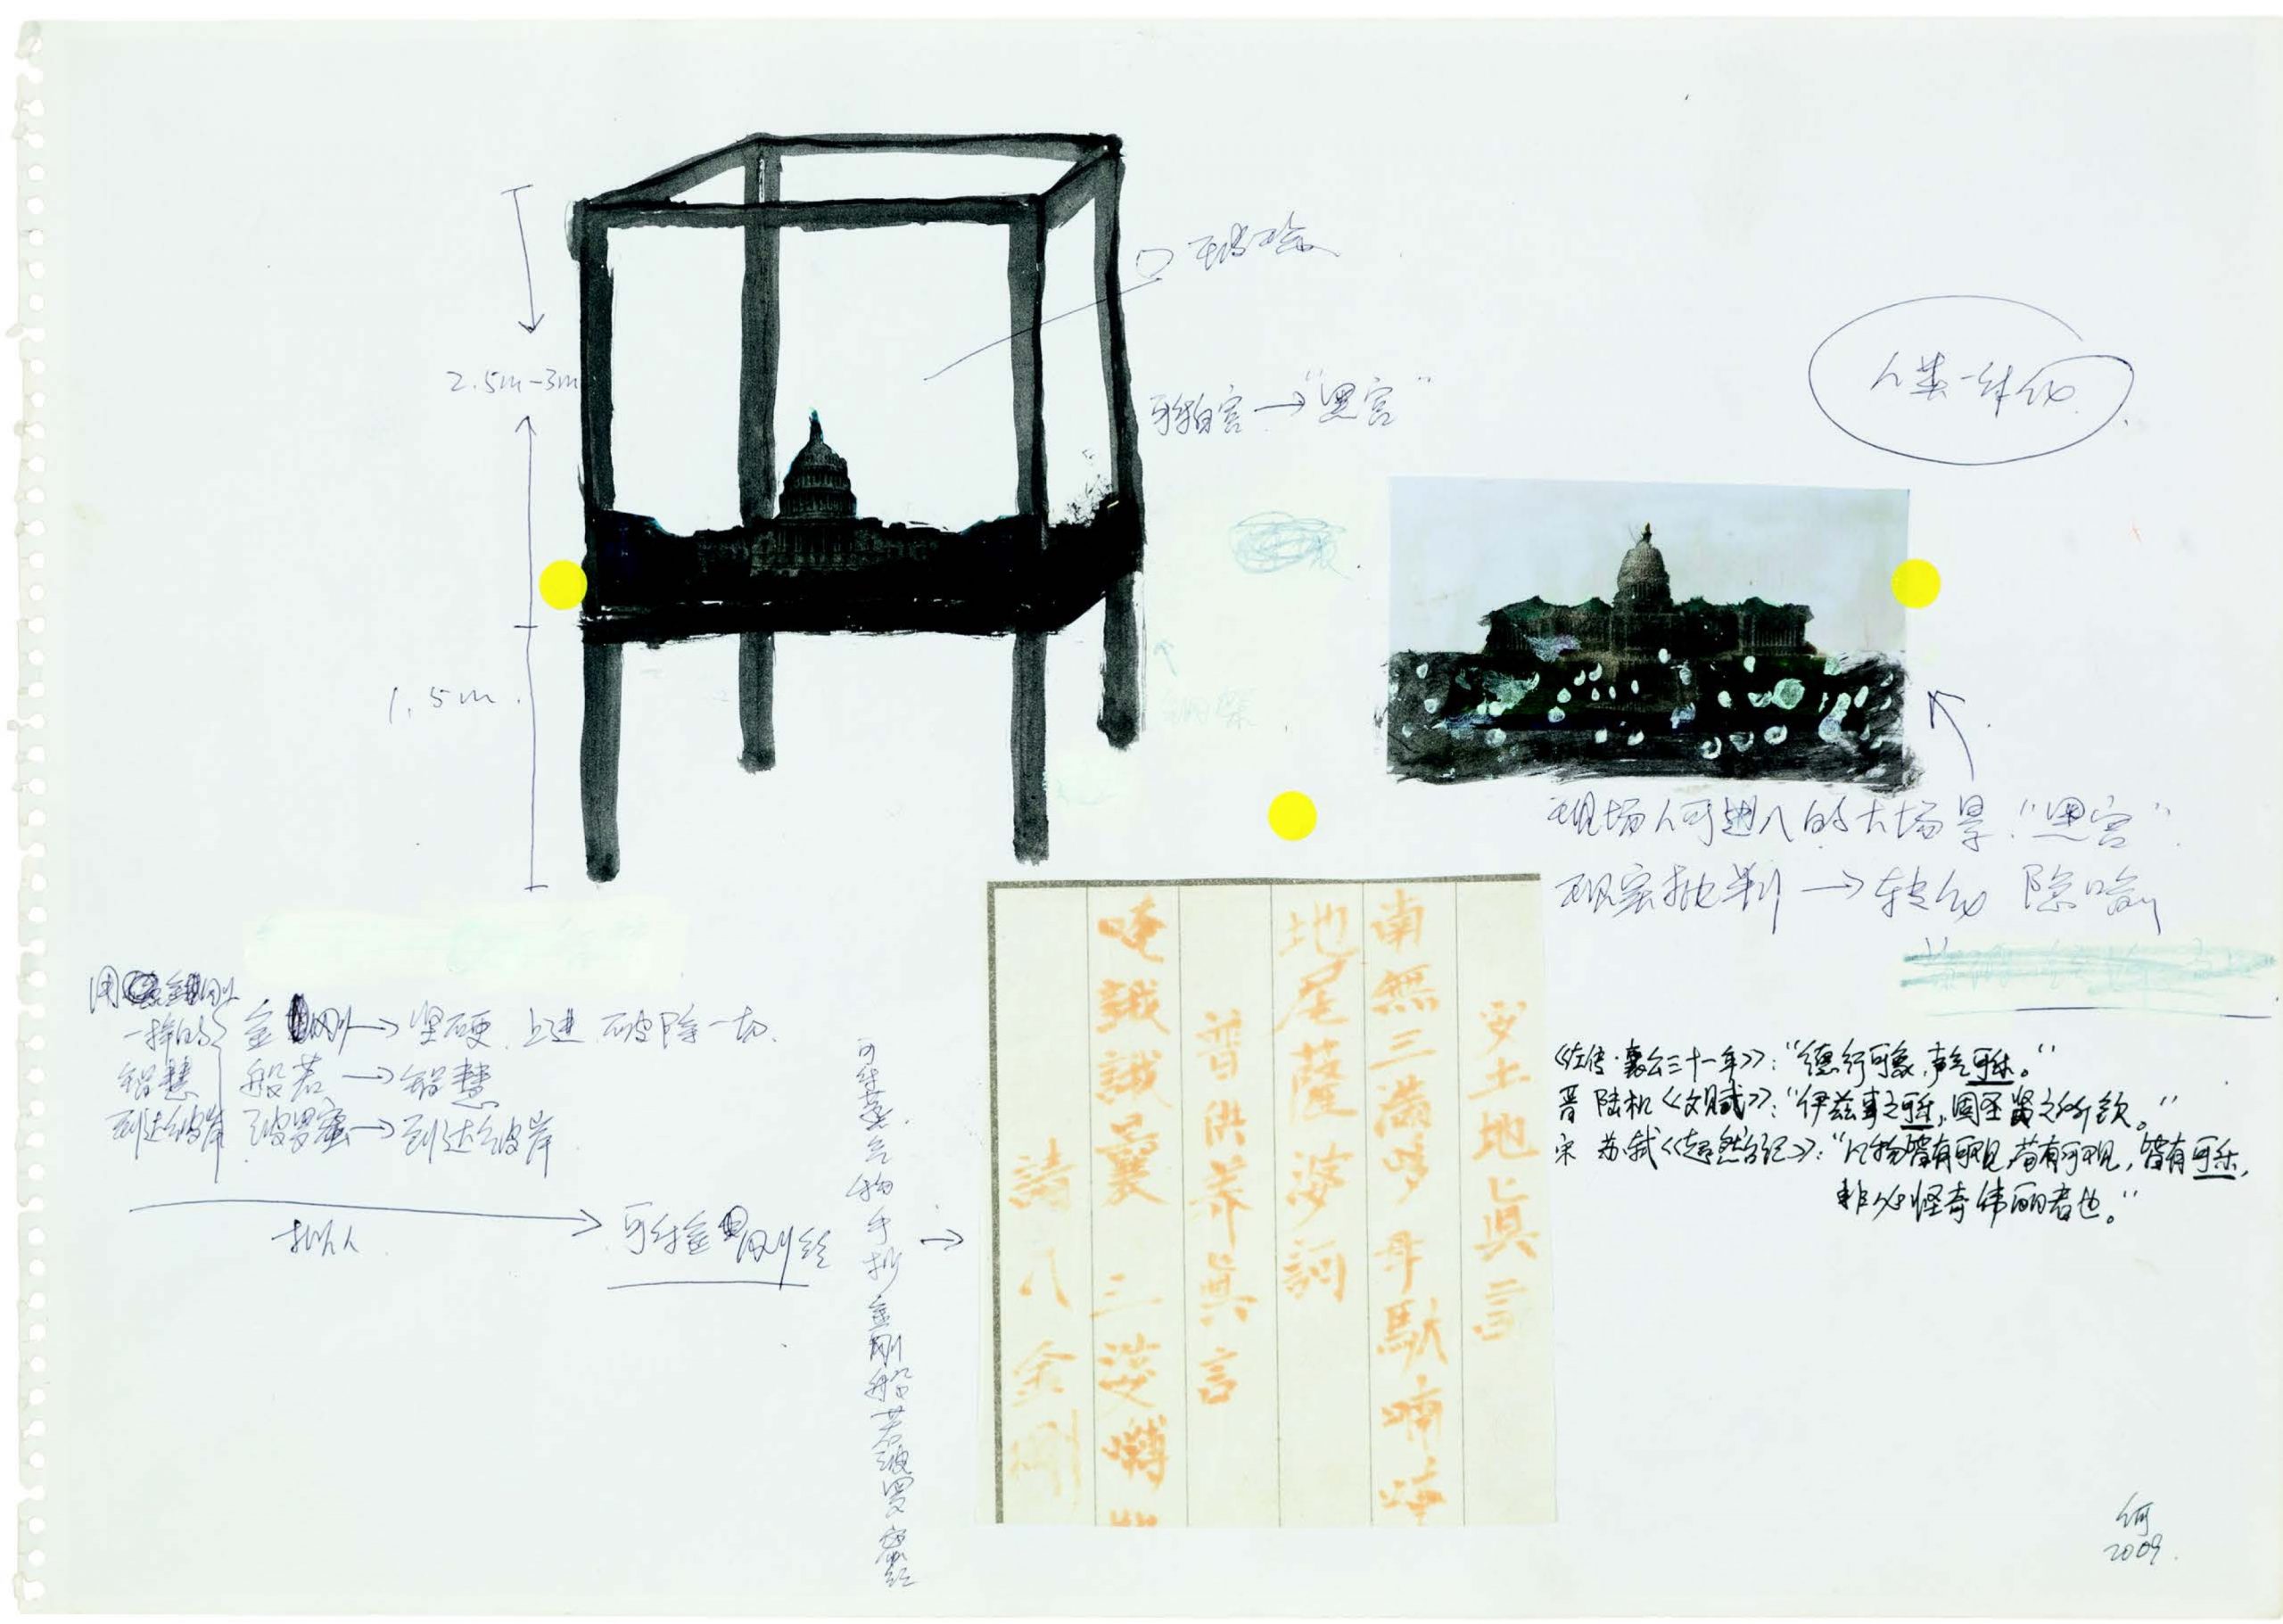 玻璃
2.5m-3m
可拍宫→"黑宫"
人类一体化
1.5m.
现场人可进入的大场景."黑宫".
现实批判→转化 隐喻
用金刚
一样的
智慧
到达彼岸
金刚→坚硬.上进.破除一切.
般若→智慧
波罗蜜→到达彼岸
拟人
金刚经
手抄金刚般若波罗蜜经
《左传·襄公三十一年》:"德行可象,声气可乐。"
晋 陆机《文赋》:"伊兹事之可乐,固圣贤之所钦。"
宋 苏轼《超然台记》:"凡物皆有可观,苟有可观,皆有可乐,
非必怪奇伟丽者也。"
安土地真言
南無三滿哆母馱喃唵
地尾薩婆訶
普供养真言
唵誐誐曩 三婆嚩
請八金剛
何
2009.